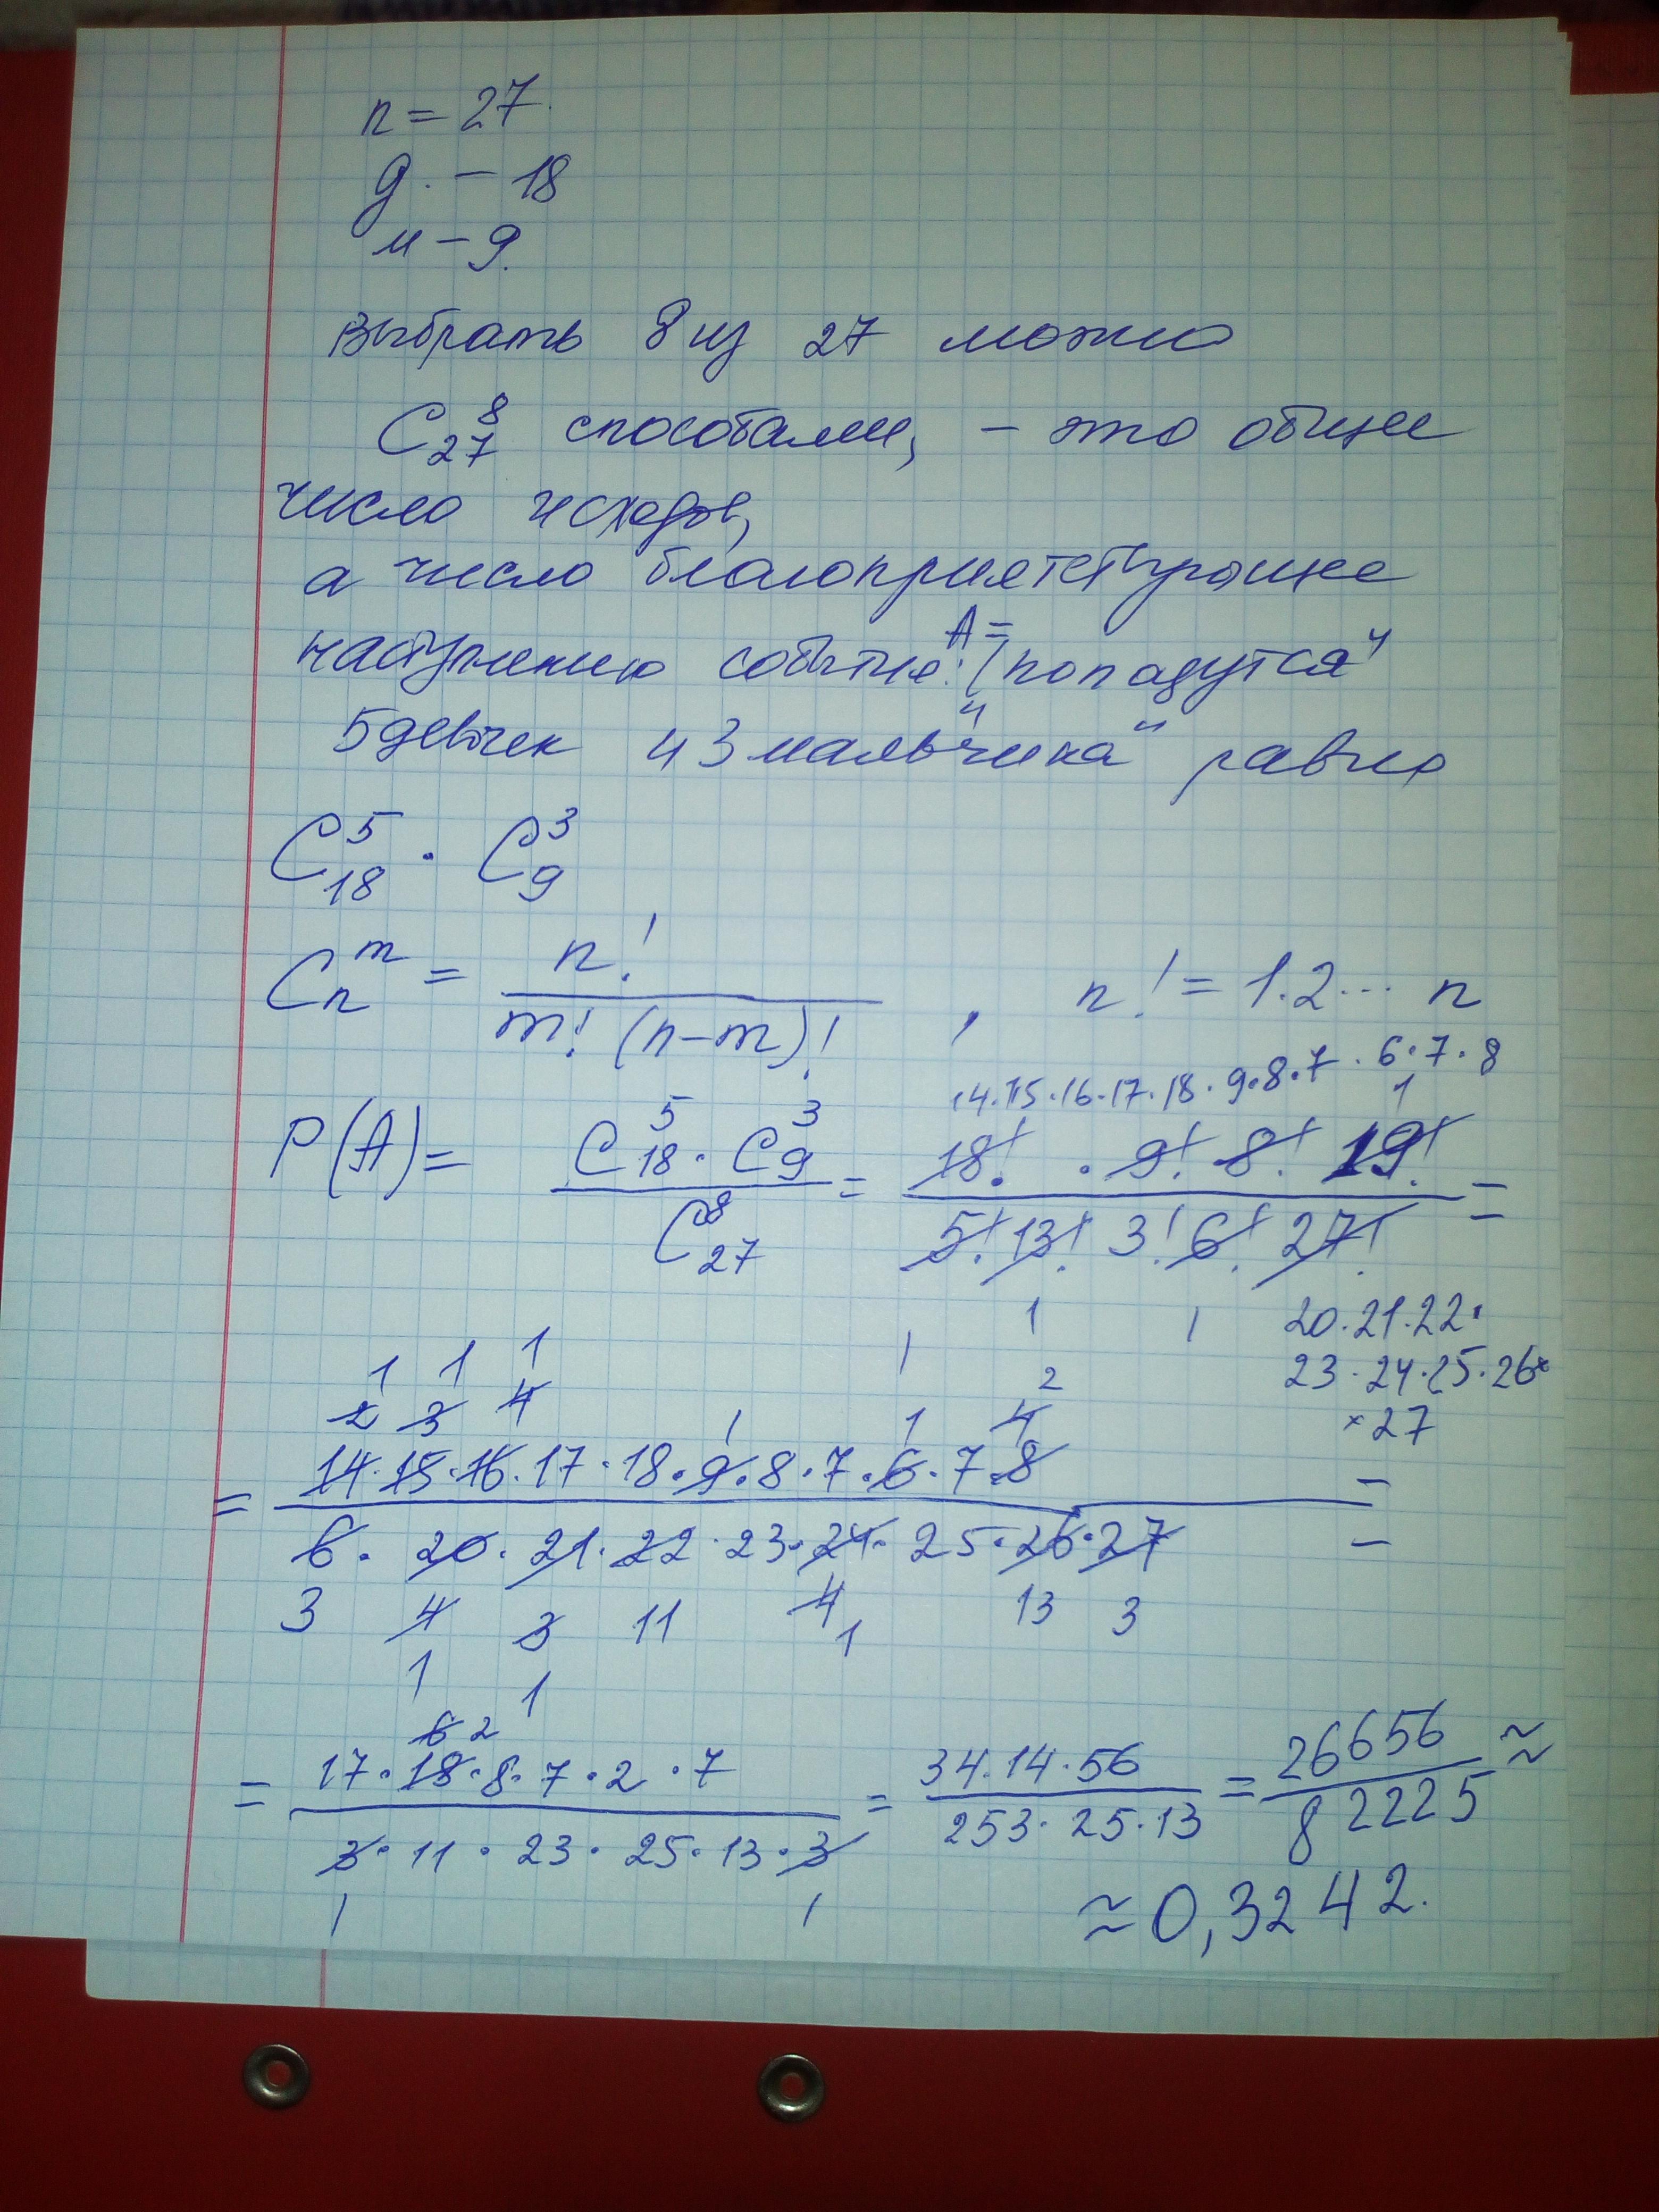 n = 27.
д. - 18
м - 9.
Выбрать 8 из 27 можно
C₂₇⁸ способами, - это общее
число исходов,
а число благоприятствующие
наступлению событие: A = (попадутся"
5 девочек и 3 мальчика" равно
C₁₈⁵ · C₉³
Cₙᵐ = n! / m! (n-m)! , n! = 1·2··· n
14·15·16·17·18·9·8·7·6·7·8
1
P(A) = C₁₈⁵ · C₉³ / C₂₇⁸ = 18! · 9! 8! 19! / 5! 13! 3! 6! 27! =
1 1 20·21·22·
23·24·25·26×
×27
1 1 1 1 2
2 3 4 1 1 4
= 14·15·16·17·18·9·8·7·6·7·8 / 6·20·21·22·23·24·25·26·27 =
3 4 3 11 4 13 3
1 1 1
6 2
= 17·18·8·7·2·7 / 3·11·23·25·13·3 = 34·14·56 / 253·25·13 = 26656 / 82225 ≈
1 1
≈ 0,3242.